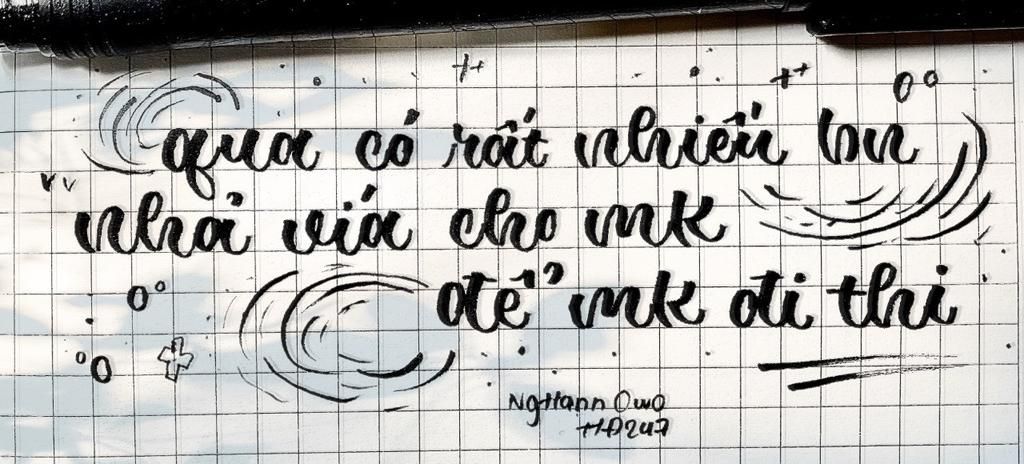 qua có rất nhiều bn
nhả vía cho mk
để mk đi thi
NgHann OwO
HD247